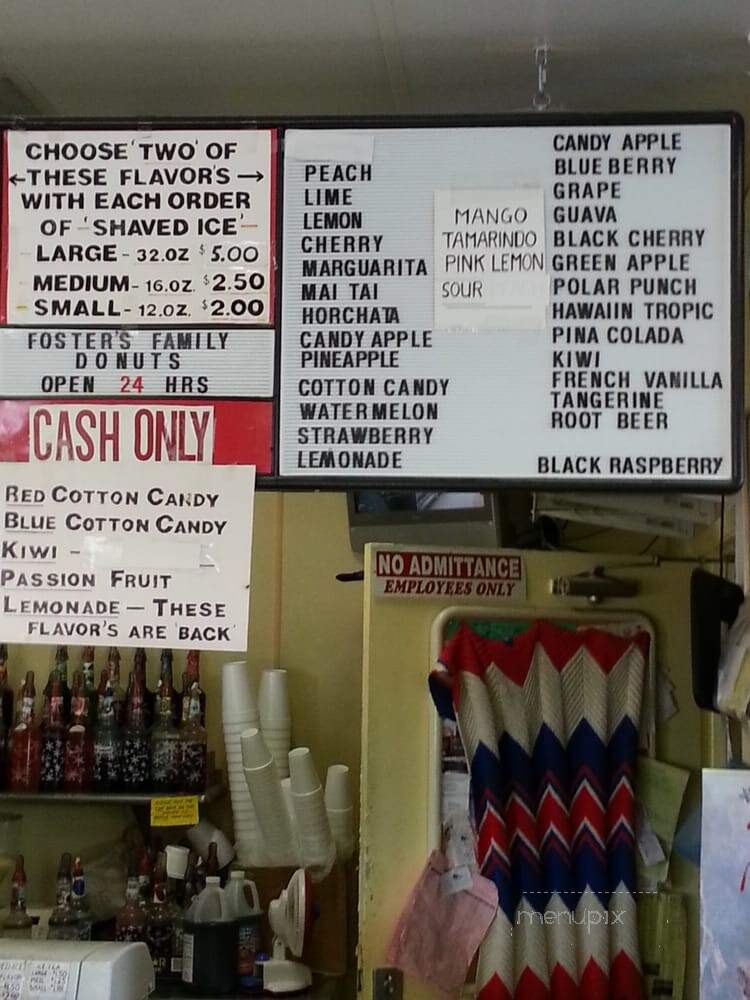 CHOOSE 'TWO' OF
←THESE FLAVOR'S→
WITH EACH ORDER
OF 'SHAVED ICE'
LARGE - 32.OZ $5.00
MEDIUM - 16.OZ. $2.50
SMALL - 12.OZ. $2.00
FOSTER'S FAMILY
DONUTS
OPEN 24 HRS
CASH ONLY
RED COTTON CANDY
BLUE COTTON CANDY
KIWI -
PASSION FRUIT
LEMONADE - THESE
FLAVOR'S ARE 'BACK'
PEACH
LIME
LEMON
CHERRY
MARGUARITA
MAI TAI
HORCHATA
CANDY APPLE
PINEAPPLE
COTTON CANDY
WATERMELON
STRAWBERRY
LEMONADE
MANGO
TAMARINDO
PINK LEMON
SOUR
CANDY APPLE
BLUE BERRY
GRAPE
GUAVA
BLACK CHERRY
GREEN APPLE
POLAR PUNCH
HAWAIIN TROPIC
PINA COLADA
KIWI
FRENCH VANILLA
TANGERINE
ROOT BEER
BLACK RASPBERRY
NO ADMITTANCE
EMPLOYEES ONLY
menupix